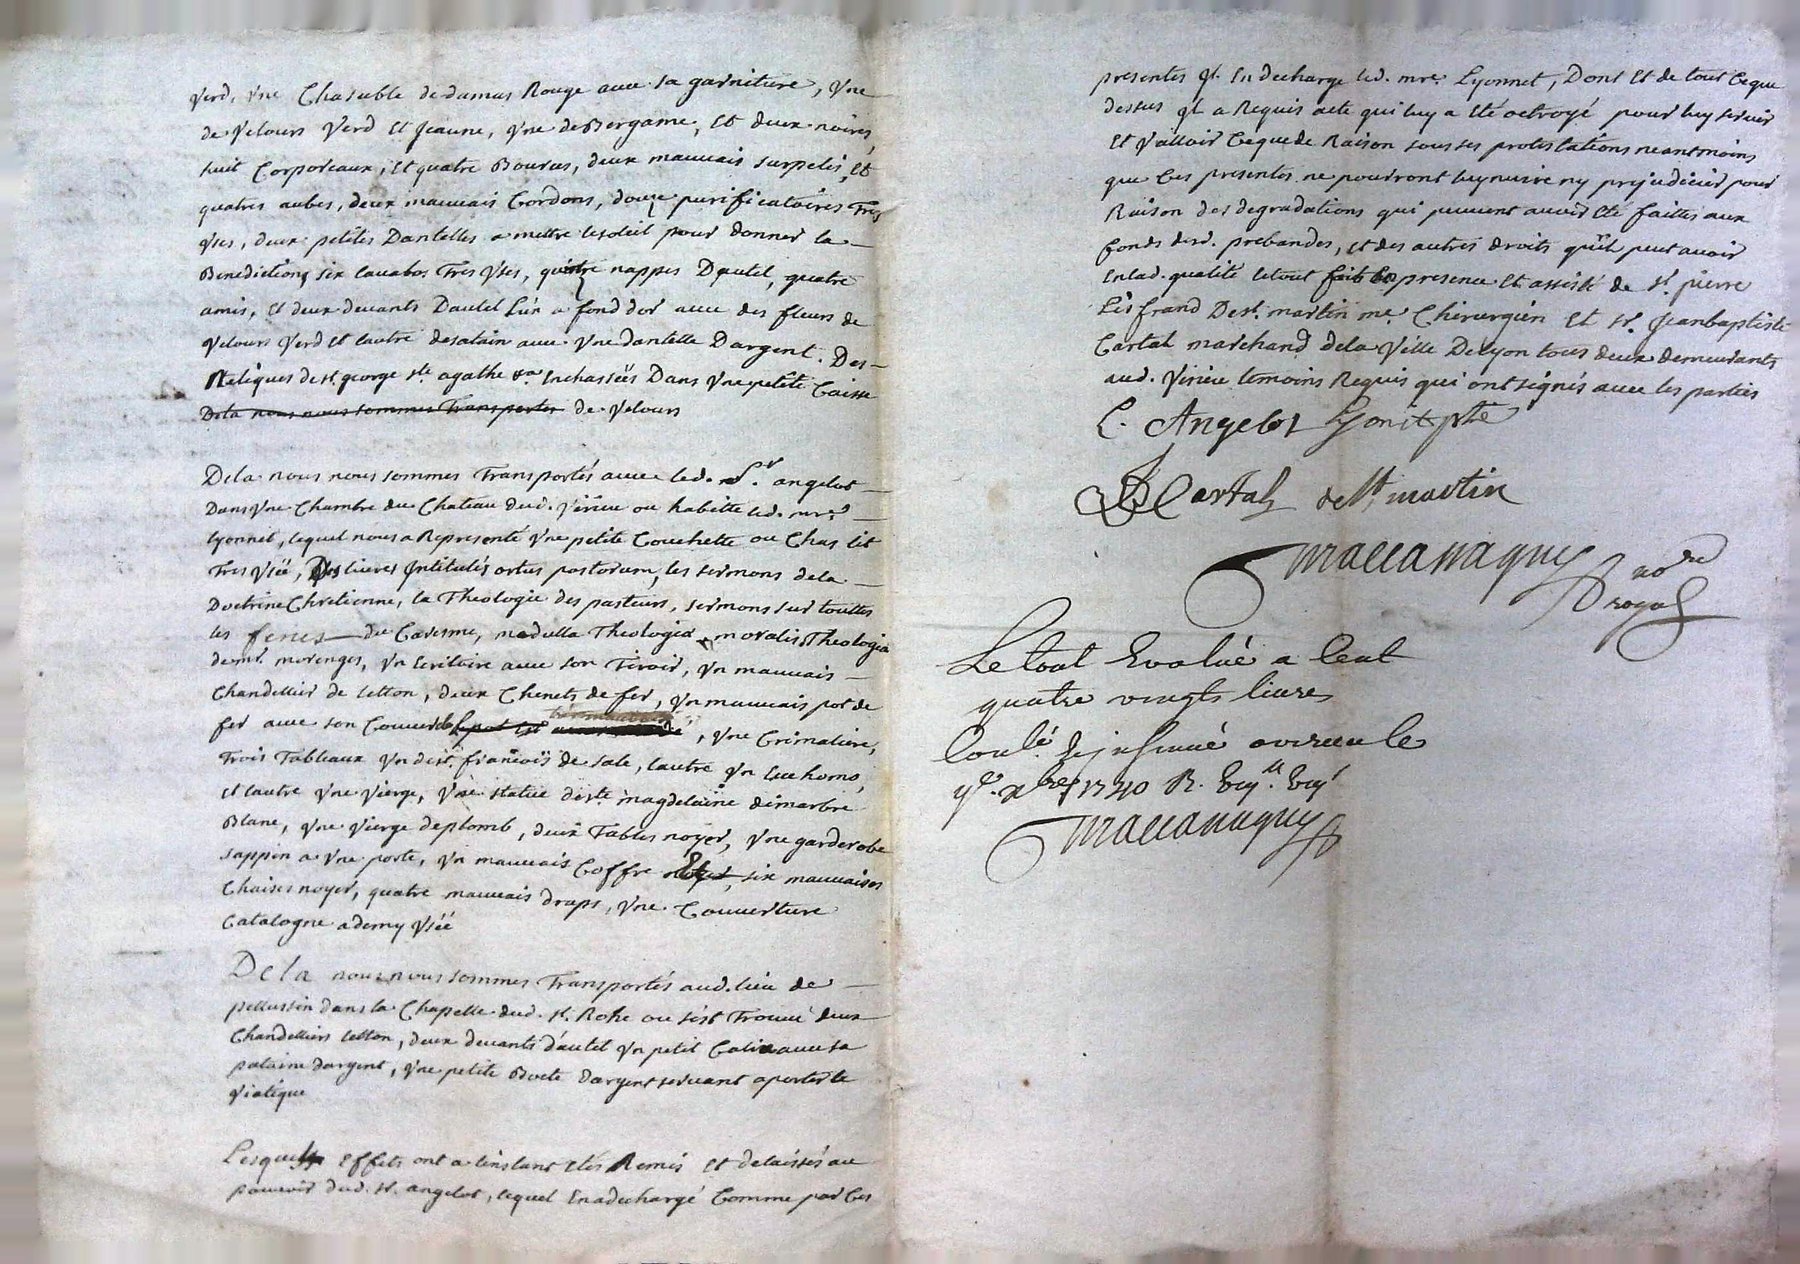 verd, Vne Chasuble de damas Rouge auec sa garniture, Vne
de Velours Verd et Jeaune, Vne de Bergame, et deux noires,
huit Corporeaux, et quatre Bourses, deux mauuais surpelis, et
quatres aubes, deux mauuais Cordons, douze purificatoires Tres
Vses, deux petites Dantelles a mettre le soleil pour donner la
Benediction, six lauabos Tres Vses, quatre nappes Dautel, quatre
amis, et deux deuants Dautel Lun a fond dor auec des fleurs de
Velours Verd et lautre de satain auec Vne dantelle Dargent. Des
Reliques de st. george ste agathe &a. Inchassées Dans Vne petite Caisse
De la nous nous sommes Transportés de Velours
De la nous nous sommes Transportés auec led. Sr. angelot
Dans Vne Chambre du Chateau dud. Virieu ou habitte led. mre.
lyonnet, lequel nous a Representé Vne petite Couchette ou Chaslit
Tres Vséë, Des liures Jntitulés ortus pastorum, les sermons de la
Doctrine Chretienne, la Theologie des pasteurs, sermons sur touttes
les feries du Caresme, medulla Theologia moralis, Theologia
de mr. morenges, Vn Ecritoire auec son Tiroir, Vn mauuais
Chandellier de letton, deux Chenets de fer, Vn mauuais pot de
fer auec son Couuercle, Vne Crimaliere,
Trois Tableaux Vn de st. françois de sale, lautre Vn Ecce homo,
et lautre Vne Vierge, Vne statue de ste magdelaine de marbre
Blanc, Vne Vierge de plomb, deux Tables noyer, Vne garderobe
sappin a Vne porte, Vn mauuais Coffre, six mauuaises
Chaises noyer, quatre mauuais draps, Vne Couuerture
Catalogne a demy Vséë
De la nous nous sommes Transportés aud. lieu de
pellussin dans la Chapelle dud. st. Roke ou sest Trouué deux
Chandelliers letton, deux deuants d'autel Vn petit Calix auec sa
pataine dargent, Vne petite Boete Dargent seruant a porter le
Viatique
Lesquels Effets ont a linstant Etés Remis et delaissés au
pouuoir dud. sr. angelot, lequel En a dechargé Comme par Ces
presentes Jl En decharge led. mre. Lyonnet, Dont et de tout Ce que
dessus Jl a Requis acte qui luy a Eté octroyé pour luy seruir
et Valloir Ce que de Raison sous ses protestations neantmoins
que Ces presentes ne pourront luy nuire ny prejudicier pour
Raison des degradations qui peuuent auoir Eté faittes aux
fonds desd. prebandes, et des autres droits quil peut auoir
En lad. qualité le tout fait En presence et assisté de sr. pierre
Lisfrand De st. martin me. Chirurgien et sr. Jean baptiste
Cartal marchand de la Ville De Lyon tous deux demeurants
aud. Virieu temoins Requis qui ont signés auec les parties
C. Angelot Lyonet ptre
JB Cartal de st martin
Maccamagny nore
royal
Le tout Evalué a Cent
quatre vingts liures
Conlé. & insinué a virieu le
xbre 1740 R.
Maccamagny